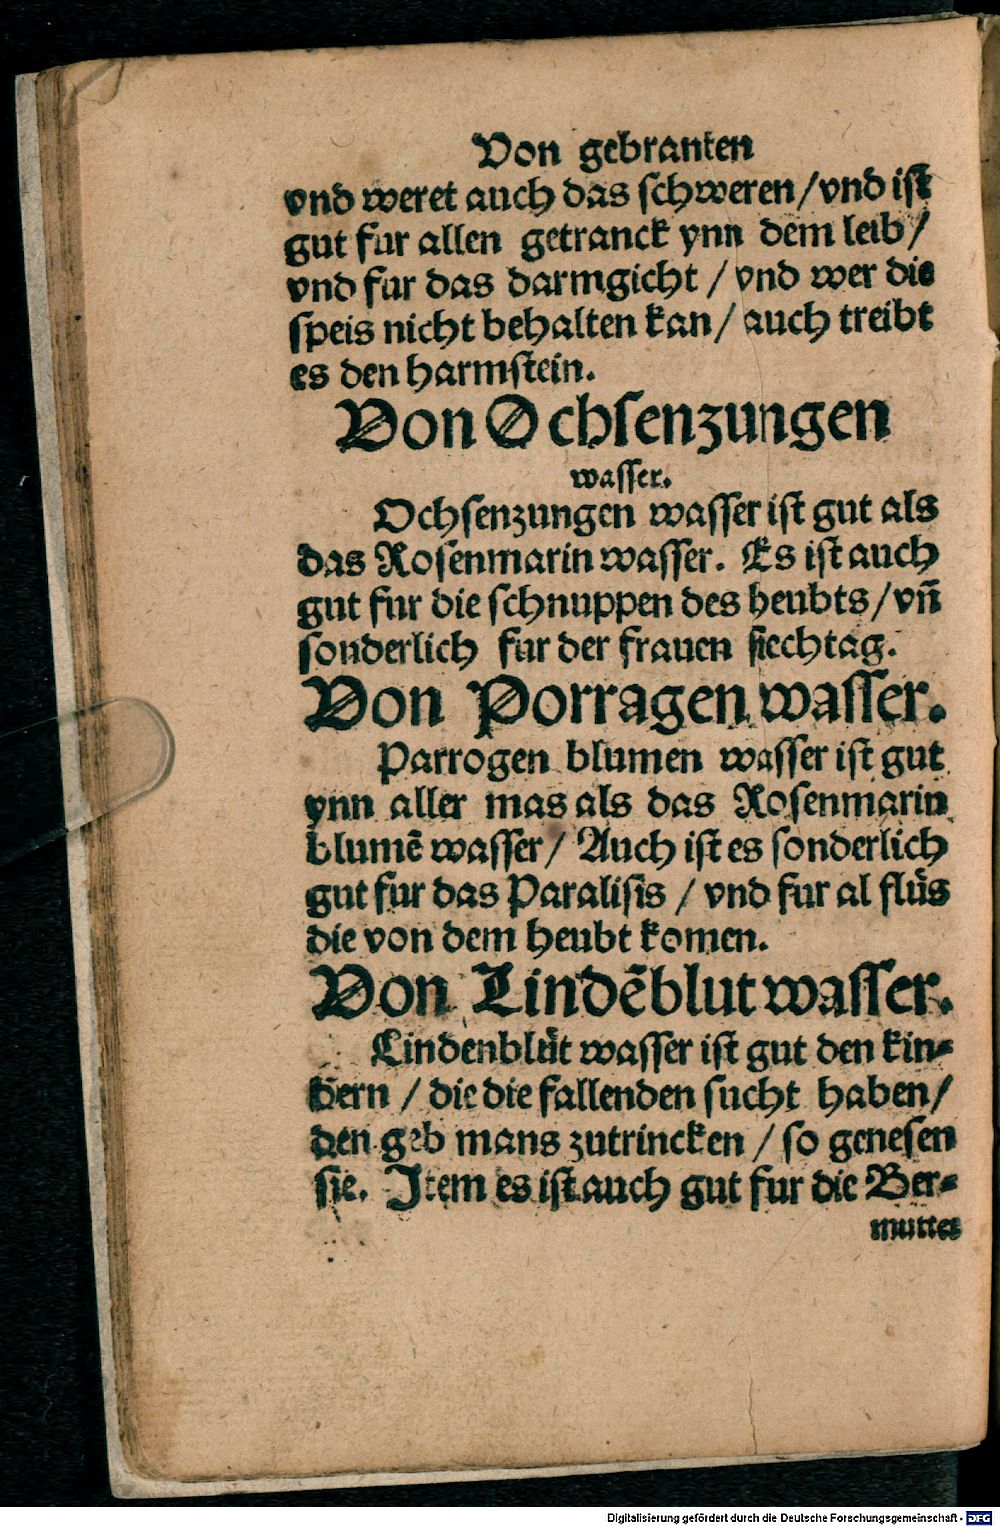 Von gebranten
vnd weret auch das schweren/vnd ist
gut fur allen getranck ynn dem leib/
vnd fur das darmgicht / vnd wer die
speis nicht behalten kan/ auch treibt
es den harmstein.
Von Ochsenzungen
wasser.
Ochsenzungen wasser ist gut als
das Rosenmarin wasser. Es ist auch
gut fur die schnuppen des heubts/vn̄
sonderlich fur der frauen siechtag.
Von Porragen wasser.
Parrogen blumen wasser ist gut
ynn aller mas als das Rosenmarin
blumē wasser/ Auch ist es sonderlich
gut fur das Paralisis / vnd fur al flüs
die von dem heubt komen.
Von Lindēblut wasser.
Lindenblüt wasser ist gut den kin-
dern / die die fallenden sucht haben/
den geb mans zutrincken / so genesen
sie. Item es ist auch gut fur die Ber-
mutter
Digitalisierung gefördert durch die Deutsche Forschungsgemeinschaft - DFG